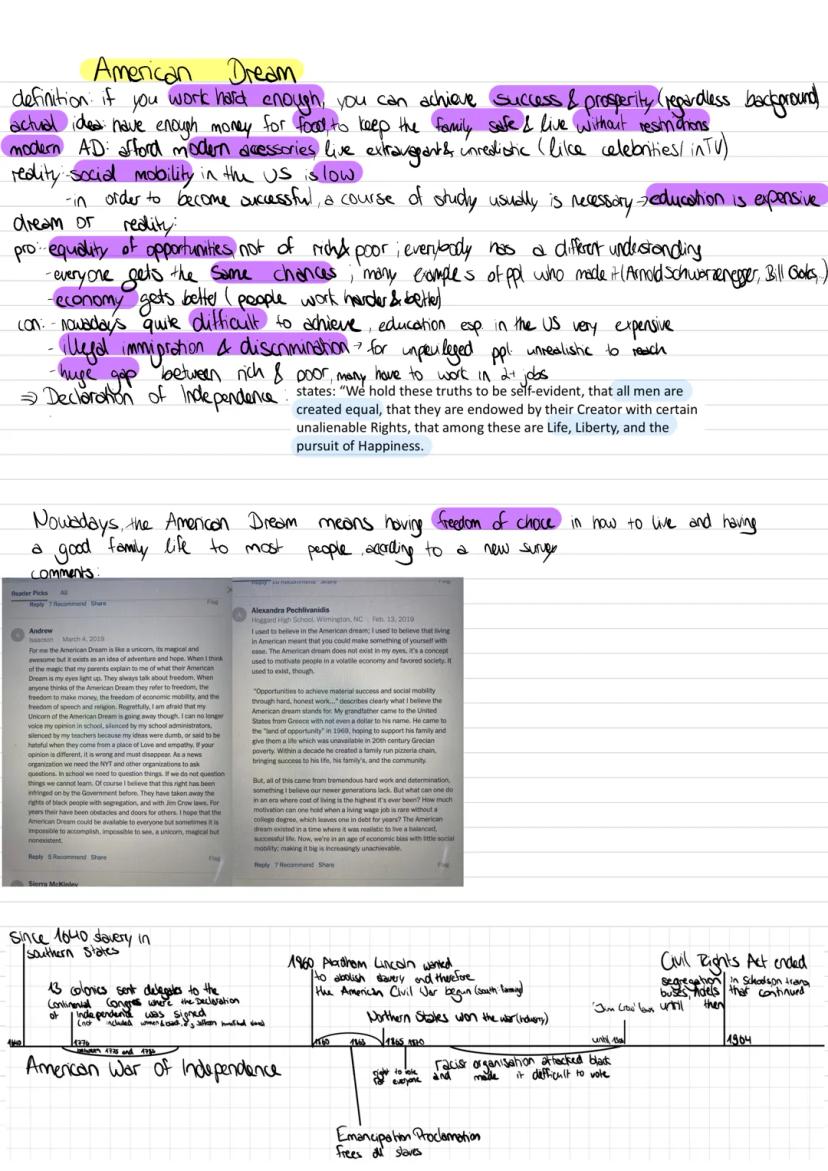 American Dream
definition: if you work hard enough, you can achieve success & prosperity (regardless background)
actual idea: have enough money for food, to keep the family safe & live without restrictions
modern AD: afford modern accessories, live extravagant & unrealistic (like celebrities/ in TV)
reality: - social mobility in the US is low
- in order to become successful, a course of study usually is necessary → education is expensive
dream or reality:
pro: - equality of opportunities, not of rich & poor ; everybody has a different understanding
- everyone gets the same chances ; many examples of ppl who made it (Arnold Schwarzenegger, Bill Gates,..)
- economy gets better (people work harder & better)
con: - nowadays quite difficult to achieve, education esp. in the US very expensive
- illegal immigration & discrimination → for unprivileged ppl. unrealistic to reach
- huge gap between rich & poor, many have to work in 2+ jobs
⇒ Declaration of Independence : states: "We hold these truths to be self-evident, that all men are
created equal, that they are endowed by their Creator with certain
unalienable Rights, that among these are Life, Liberty, and the
pursuit of Happiness.
Nowadays, the American Dream means having freedom of choice in how to live and having
a good family life to most people, according to a new survey
comments:
Reader Picks All
Reply 7 Recommend Share Flag
Andrew
Isaacson | March 4, 2019
For me the American Dream is like a unicorn, its magical and
awesome but it exists as an idea of adventure and hope. When I think
of the magic that my parents explain to me of what their American
Dream is my eyes light up. They always talk about freedom. When
anyone thinks of the American Dream they refer to freedom, the
freedom to make money, the freedom of economic mobility, and the
freedom of speech and religion. Regretfully, I am afraid that my
Unicorn of the American Dream is going away though. I can no longer
voice my opinion in school, silenced by my school administrators,
silenced by my teachers because my ideas were dumb, or said to be
hateful when they come from a place of Love and empathy. If your
opinion is different, it is wrong and must disappear. As a news
organization we need the NYT and other organizations to ask
questions. In school we need to question things. If we do not question
things we cannot learn. Of course I believe that this right has been
infringed on by the Government before. They have taken away the
rights of black people with segregation, and with Jim Crow laws. For
years their have been obstacles and doors for others. I hope that the
American Dream could be available to everyone but sometimes it is
impossible to accomplish, impossible to see, a unicorn, magical but
nonexistent.
Reply 5 Recommend Share Flag
Sierra McKinley
Alexandra Pechlivanidis
Hoggard High School, Wilmington, NC | Feb. 13, 2019
I used to believe in the American dream; I used to believe that living
in American meant that you could make something of yourself with
ease. The American dream does not exist in my eyes, it's a concept
used to motivate people in a volatile economy and favored society. It
used to exist, though.
"Opportunities to achieve material success and social mobility
through hard, honest work..." describes clearly what I believe the
American dream stands for. My grandfather came to the United
States from Greece with not even a dollar to his name. He came to
the "land of opportunity" in 1969, hoping to support his family and
give them a life which was unavailable in 20th century Grecian
poverty. Within a decade he created a family run pizzeria chain,
bringing success to his life, his family's, and the community.
But, all of this came from tremendous hard work and determination,
something I believe our newer generations lack. But what can one do
in an era where cost of living is the highest it's ever been? How much
motivation can one hold when a living wage job is rare without a
college degree, which leaves one in debt for years? The American
dream existed in a time where it was realistic to live a balanced,
successful life. Now, we're in an age of economic bias with little social
mobility; making it big is increasingly unachievable.
Reply 7 Recommend Share Flag
Since 1640 slavery in
southern States
13 colonies sent delegates to the
Continental Congress where the Declaration
of Independence was signed
(not included women &
1860 Abraham Lincoln wanted
to abolish slavery and therefore
the American Civil War begun (south: farming)
Northern States won the war (industry)
'Jim Crow' laws until then
Civil Rights Act ended
segregation in schools, on trang
buses, hotels that continued
1640 1776 1860 1863 1865 1870 until 1964
between 1775 and 1783
American War of Independence
right to vote
for everyone
racist organisation attacked black
and made it difficult to vote
Emancipation Proclamation
frees all slaves